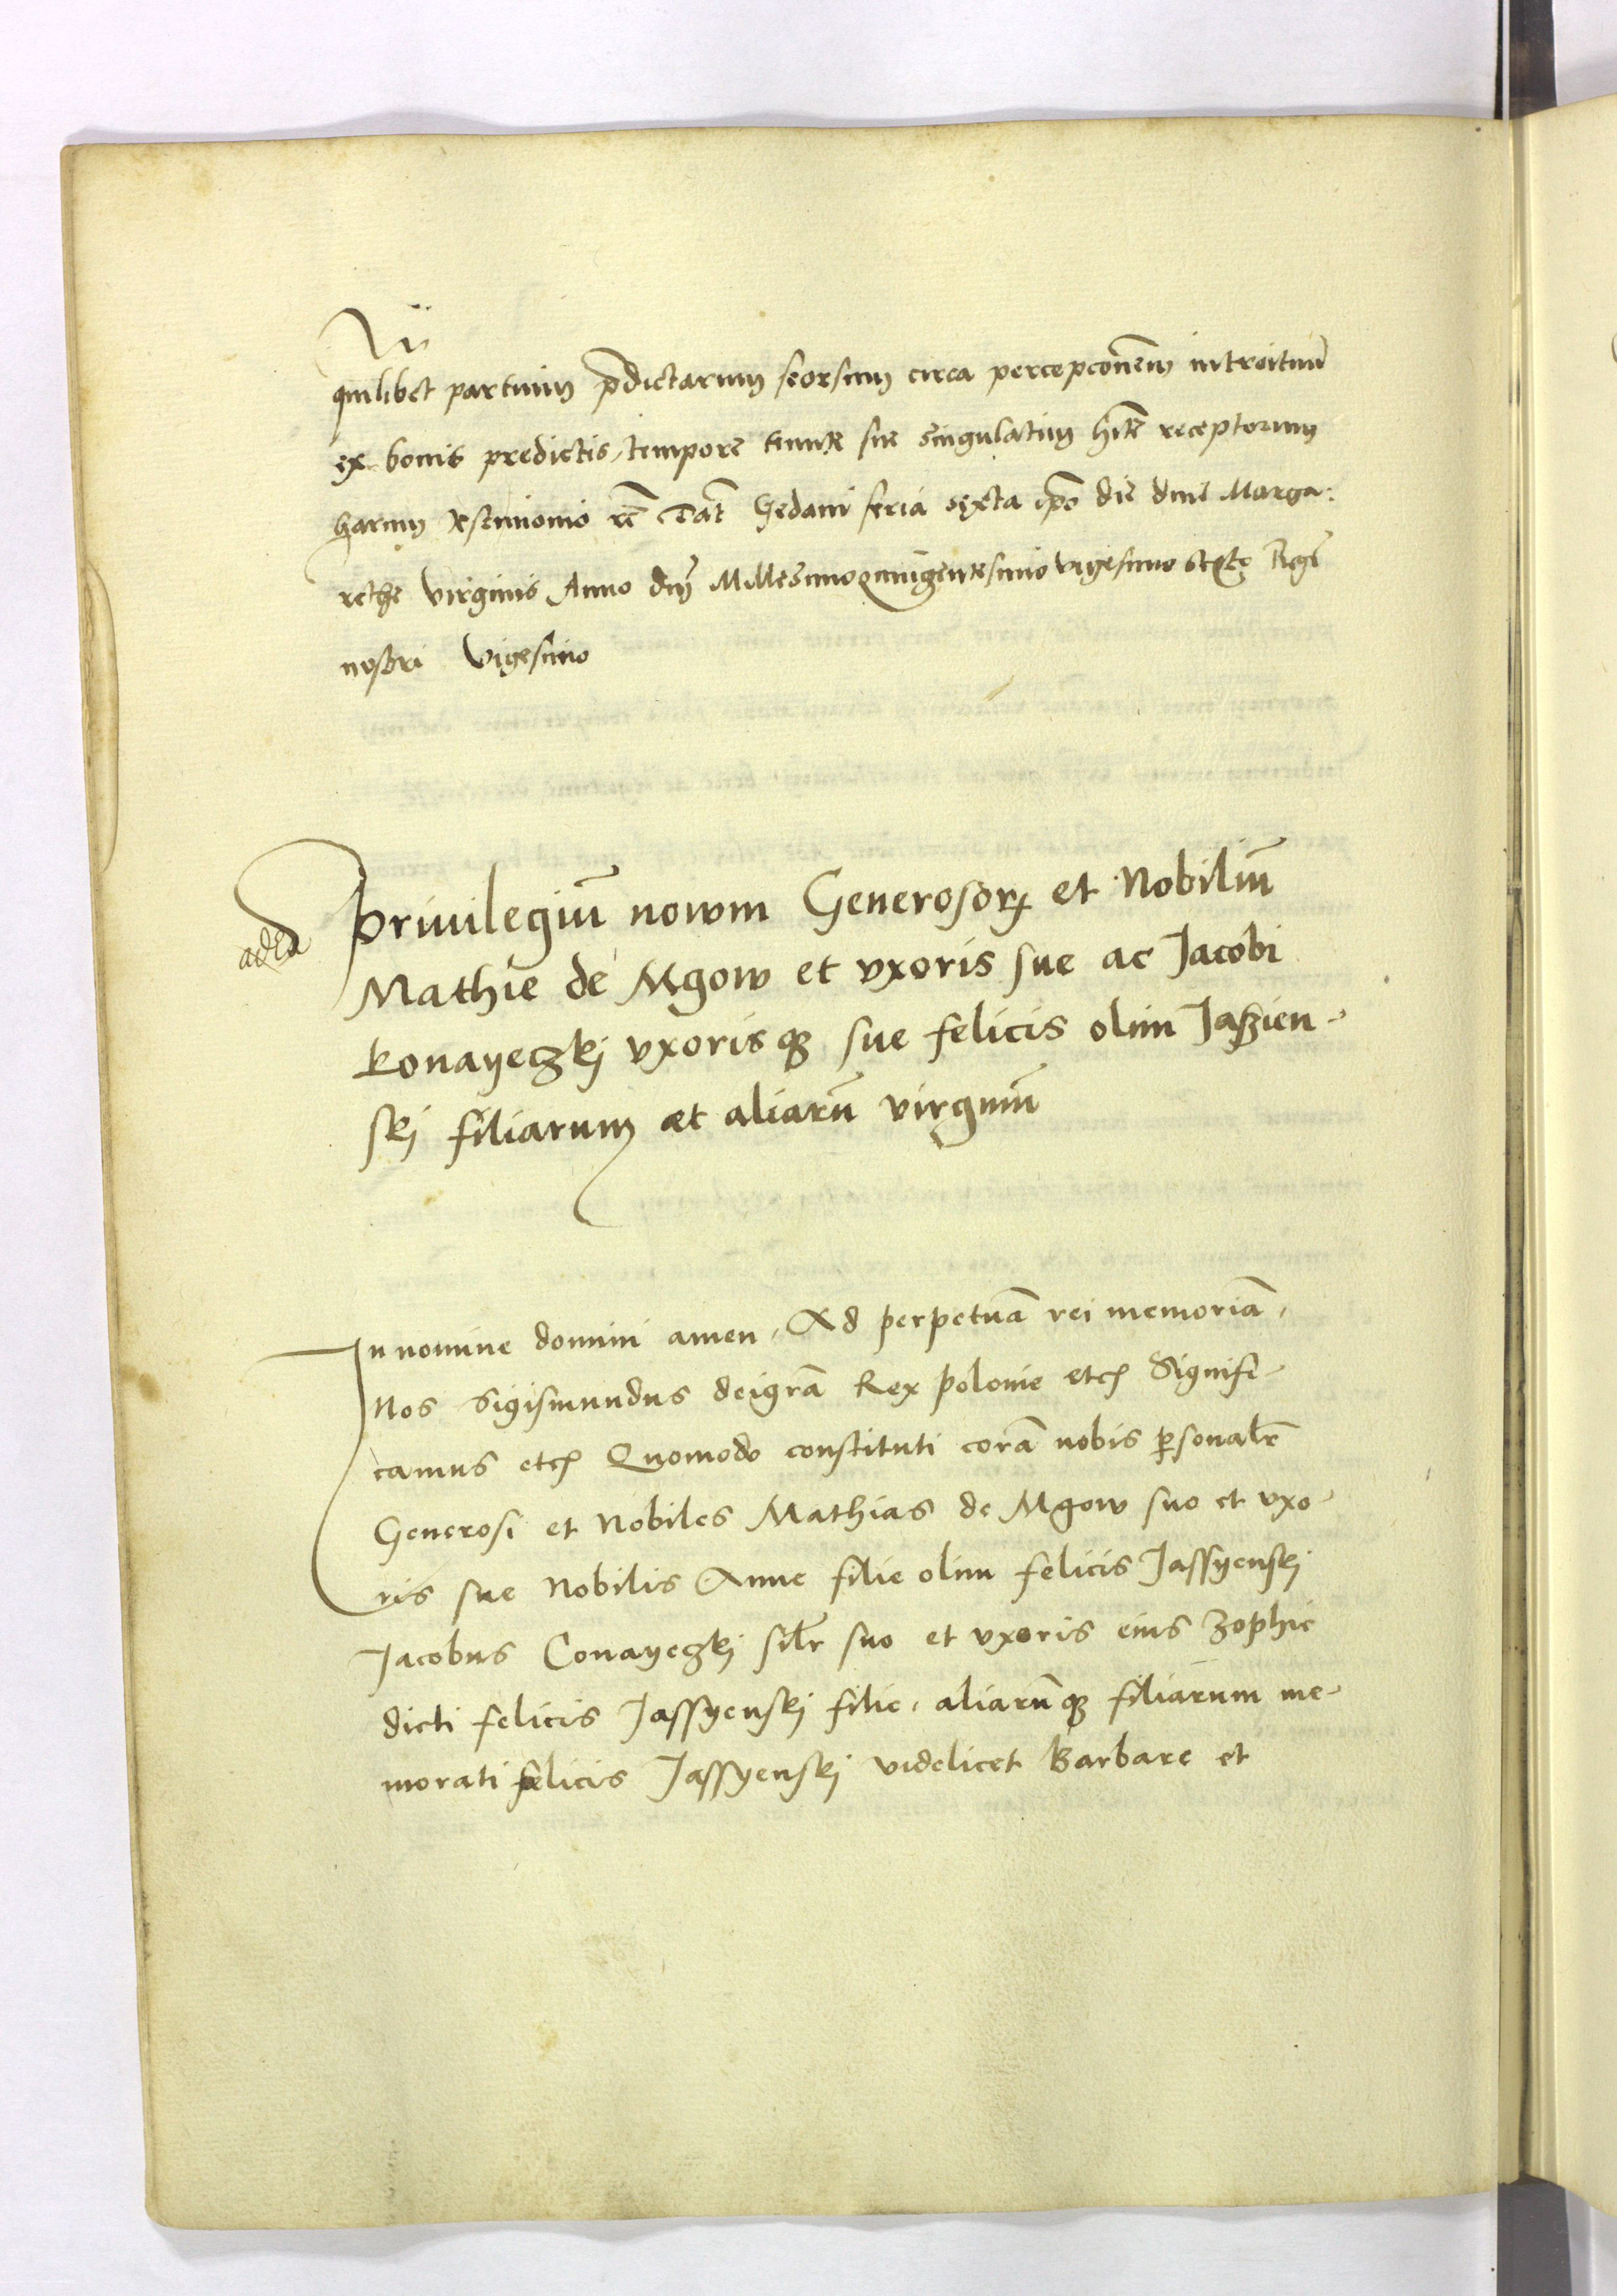 quilibet partium p̄dictarum seorsum circa percepcōnem introituū
ex bonis predictis, tempore tenute sue singulatim hītē receptorum
harum testimonio rē Dat̄ Gedani feria sexta ipō die diuē Marga:
rethe virginis Anno dnī Millesimo quingentesimo vigesimo sexto Rgnī
nostri vigesimo
Priuilegiū nowm Generosorꝝ et Nobiliū
adēa
Mathie de Mgow et vxoris sue ac Jacobi
Konayeczkj vxorisqꝫ sue felicis olim Jaszien-
skj filiarum et aliarū virginū
In nomine domini amen, Ad perpetuā rei memoriā,
Nos Sigismundus dei grā Rex polonie etcꝭ Signifi-
camus etcꝭ Quomodo constituti corā nobis ꝑsonalr̄
Generosi et Nobiles Mathias de Mgow suo et vxo-
ris sue Nobilis Anne filie olim felicis Jassyenskj
Jacobus Conayeczkj silr̄ suo et vxoris eius Zophie
dicti felicis Jassyenskj filie, aliarūqꝫ filiarum me-
morati felicis Jassyenskj videlicet Barbare et